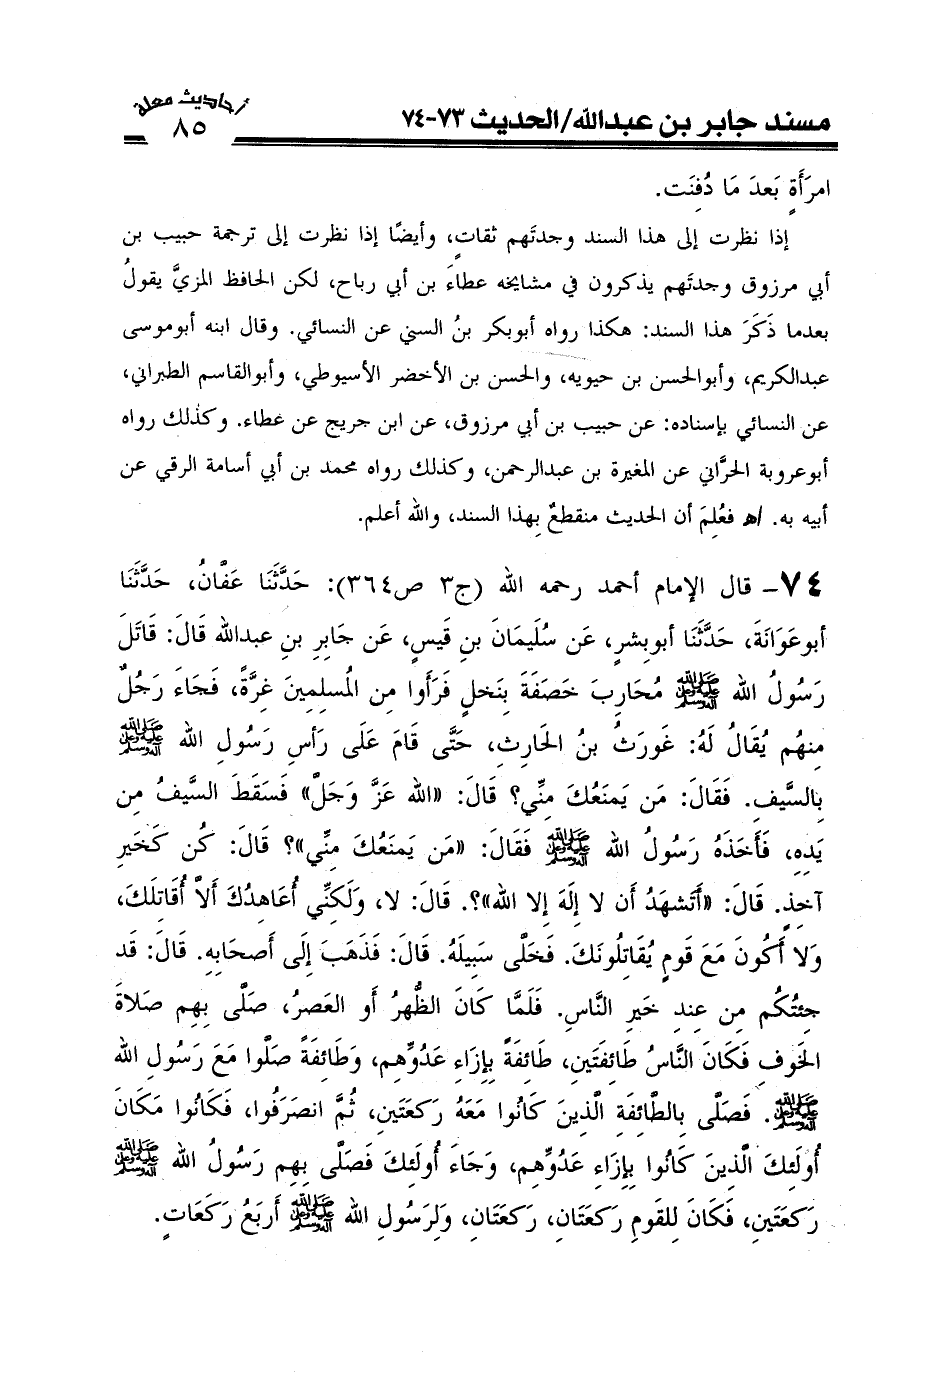 مسند جابر بن عبدالله/الحديث ٧٣-٧٤
أحاديث معلة
٨٥
امرَأَةٍ بَعدَ مَا دُفِنَت.
إذا نظرت إلى هذا السند وجدتَهم ثقاتٍ، وأيضًا إذا نظرت إلى ترجمة حبيب بن
أبي مرزوق وجدتَهم يذكرون في مشايخه عطاءَ بن أبي رباح، لكن الحافظ المزيَّ يقولُ
بعدما ذَكَرَ هذا السند: هكذا رواه أبوبكر بنُ السني عن النسائي. وقال ابنه أبوموسى
عبدالكريم، وأبوالحسن بن حيويه، والحسن بن الأخضر الأسيوطي، وأبوالقاسم الطبراني،
عن النسائي بإسناده: عن حبيب بن أبي مرزوق، عن ابن جريج عن عطاء. وكذلك رواه
أبوعروبة الحرَّاني عن المغيرة بن عبدالرحمن، وكذلك رواه محمد بن أبي أسامة الرقي عن
أبيه به. اﻫ فعُلِمَ أن الحديث منقطعٌ بهذا السند، والله أعلم.
٧٤- قال الإمام أحمد رحمه الله (ج٣ ص٣٦٤): حَدَّثَنَا عَفَّانُ، حَدَّثَنَا
أبوعَوَانَةَ، حَدَّثَنَا أبوبِشرٍ، عَن سُلَيمَانَ بنِ قَيسٍ، عَن جَابِرِ بنِ عبدالله قَالَ: قَاتَلَ
رَسُولُ الله ﷺ مُحَارِبَ خَصَفَةَ بِنَخلٍ فَرَأَوا مِن المُسلِمِينَ غِرَّةً، فَجَاءَ رَجُلٌ
مِنهُم يُقَالُ لَهُ: غَورَثُ بنُ الحَارِثِ، حَتَّى قَامَ عَلَى رَأسِ رَسُولِ الله ﷺ
بِالسَّيفِ. فَقَالَ: مَن يَمنَعُكَ مِنِّي؟ قَالَ: «الله عَزَّ وَجَلَّ» فَسَقَطَ السَّيفُ مِن
يَدِهِ، فَأَخَذَهُ رَسُولُ الله ﷺ فَقَالَ: «مَن يَمنَعُكَ مِنِّي»؟ قَالَ: كُن كَخَيرِ
آخِذٍ. قَالَ: «أَتَشهَدُ أَن لا إِلَهَ إلا الله»؟. قَالَ: لا، وَلَكِنِّي أُعَاهِدُكَ أَلاَّ أُقَاتِلَكَ،
وَلا أَكُونَ مَعَ قَومٍ يُقَاتِلُونَكَ. فَخَلَّى سَبِيلَهُ. قَالَ: فَذَهَبَ إِلَى أَصحَابِهِ. قَالَ: قَد
جِئتُكُم مِن عِندِ خَيرِ النَّاسِ. فَلَمَّا كَانَ الظُّهرُ أَو العَصرُ، صَلَّى بِهِم صَلاةَ
الخَوفِ فَكَانَ النَّاسُ طَائِفَتَينِ، طَائِفَةً بِإِزَاءِ عَدُوِّهِم، وَطَائِفَةً صَلَّوا مَعَ رَسُولِ الله
ﷺ. فَصَلَّى بِالطَّائِفَةِ الَّذِينَ كَانُوا مَعَهُ رَكعَتَينِ، ثُمَّ انصَرَفُوا، فَكَانُوا مَكَانَ
أُولَئِكَ الَّذِينَ كَانُوا بِإِزَاءِ عَدُوِّهِم، وَجَاءَ أُولَئِكَ فَصَلَّى بِهِم رَسُولُ الله ﷺ
رَكعَتَينِ، فَكَانَ لِلقَومِ رَكعَتَانِ، رَكعَتَانِ، وَلِرَسُولِ الله ﷺ أَربَعُ رَكَعَاتٍ.